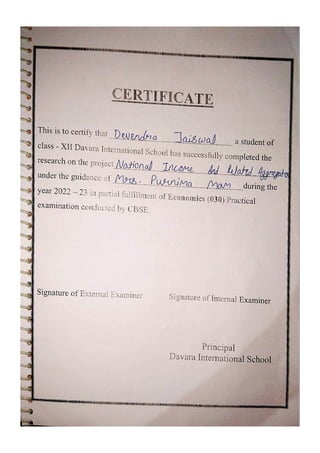 CERTIFICATE
This is to certify that Devendra Jaiswal a student of
class - XII Davara International School has successfully completed the
research on the project National Income And Related Aggregates
under the guidance of Mrs. Purnima Mam during the
year 2022 – 23 in partial fulfillment of Economics (030) Practical
examination conducted by CBSE.
Signature of External Examiner Signature of Internal Examiner
Principal
Davara International School